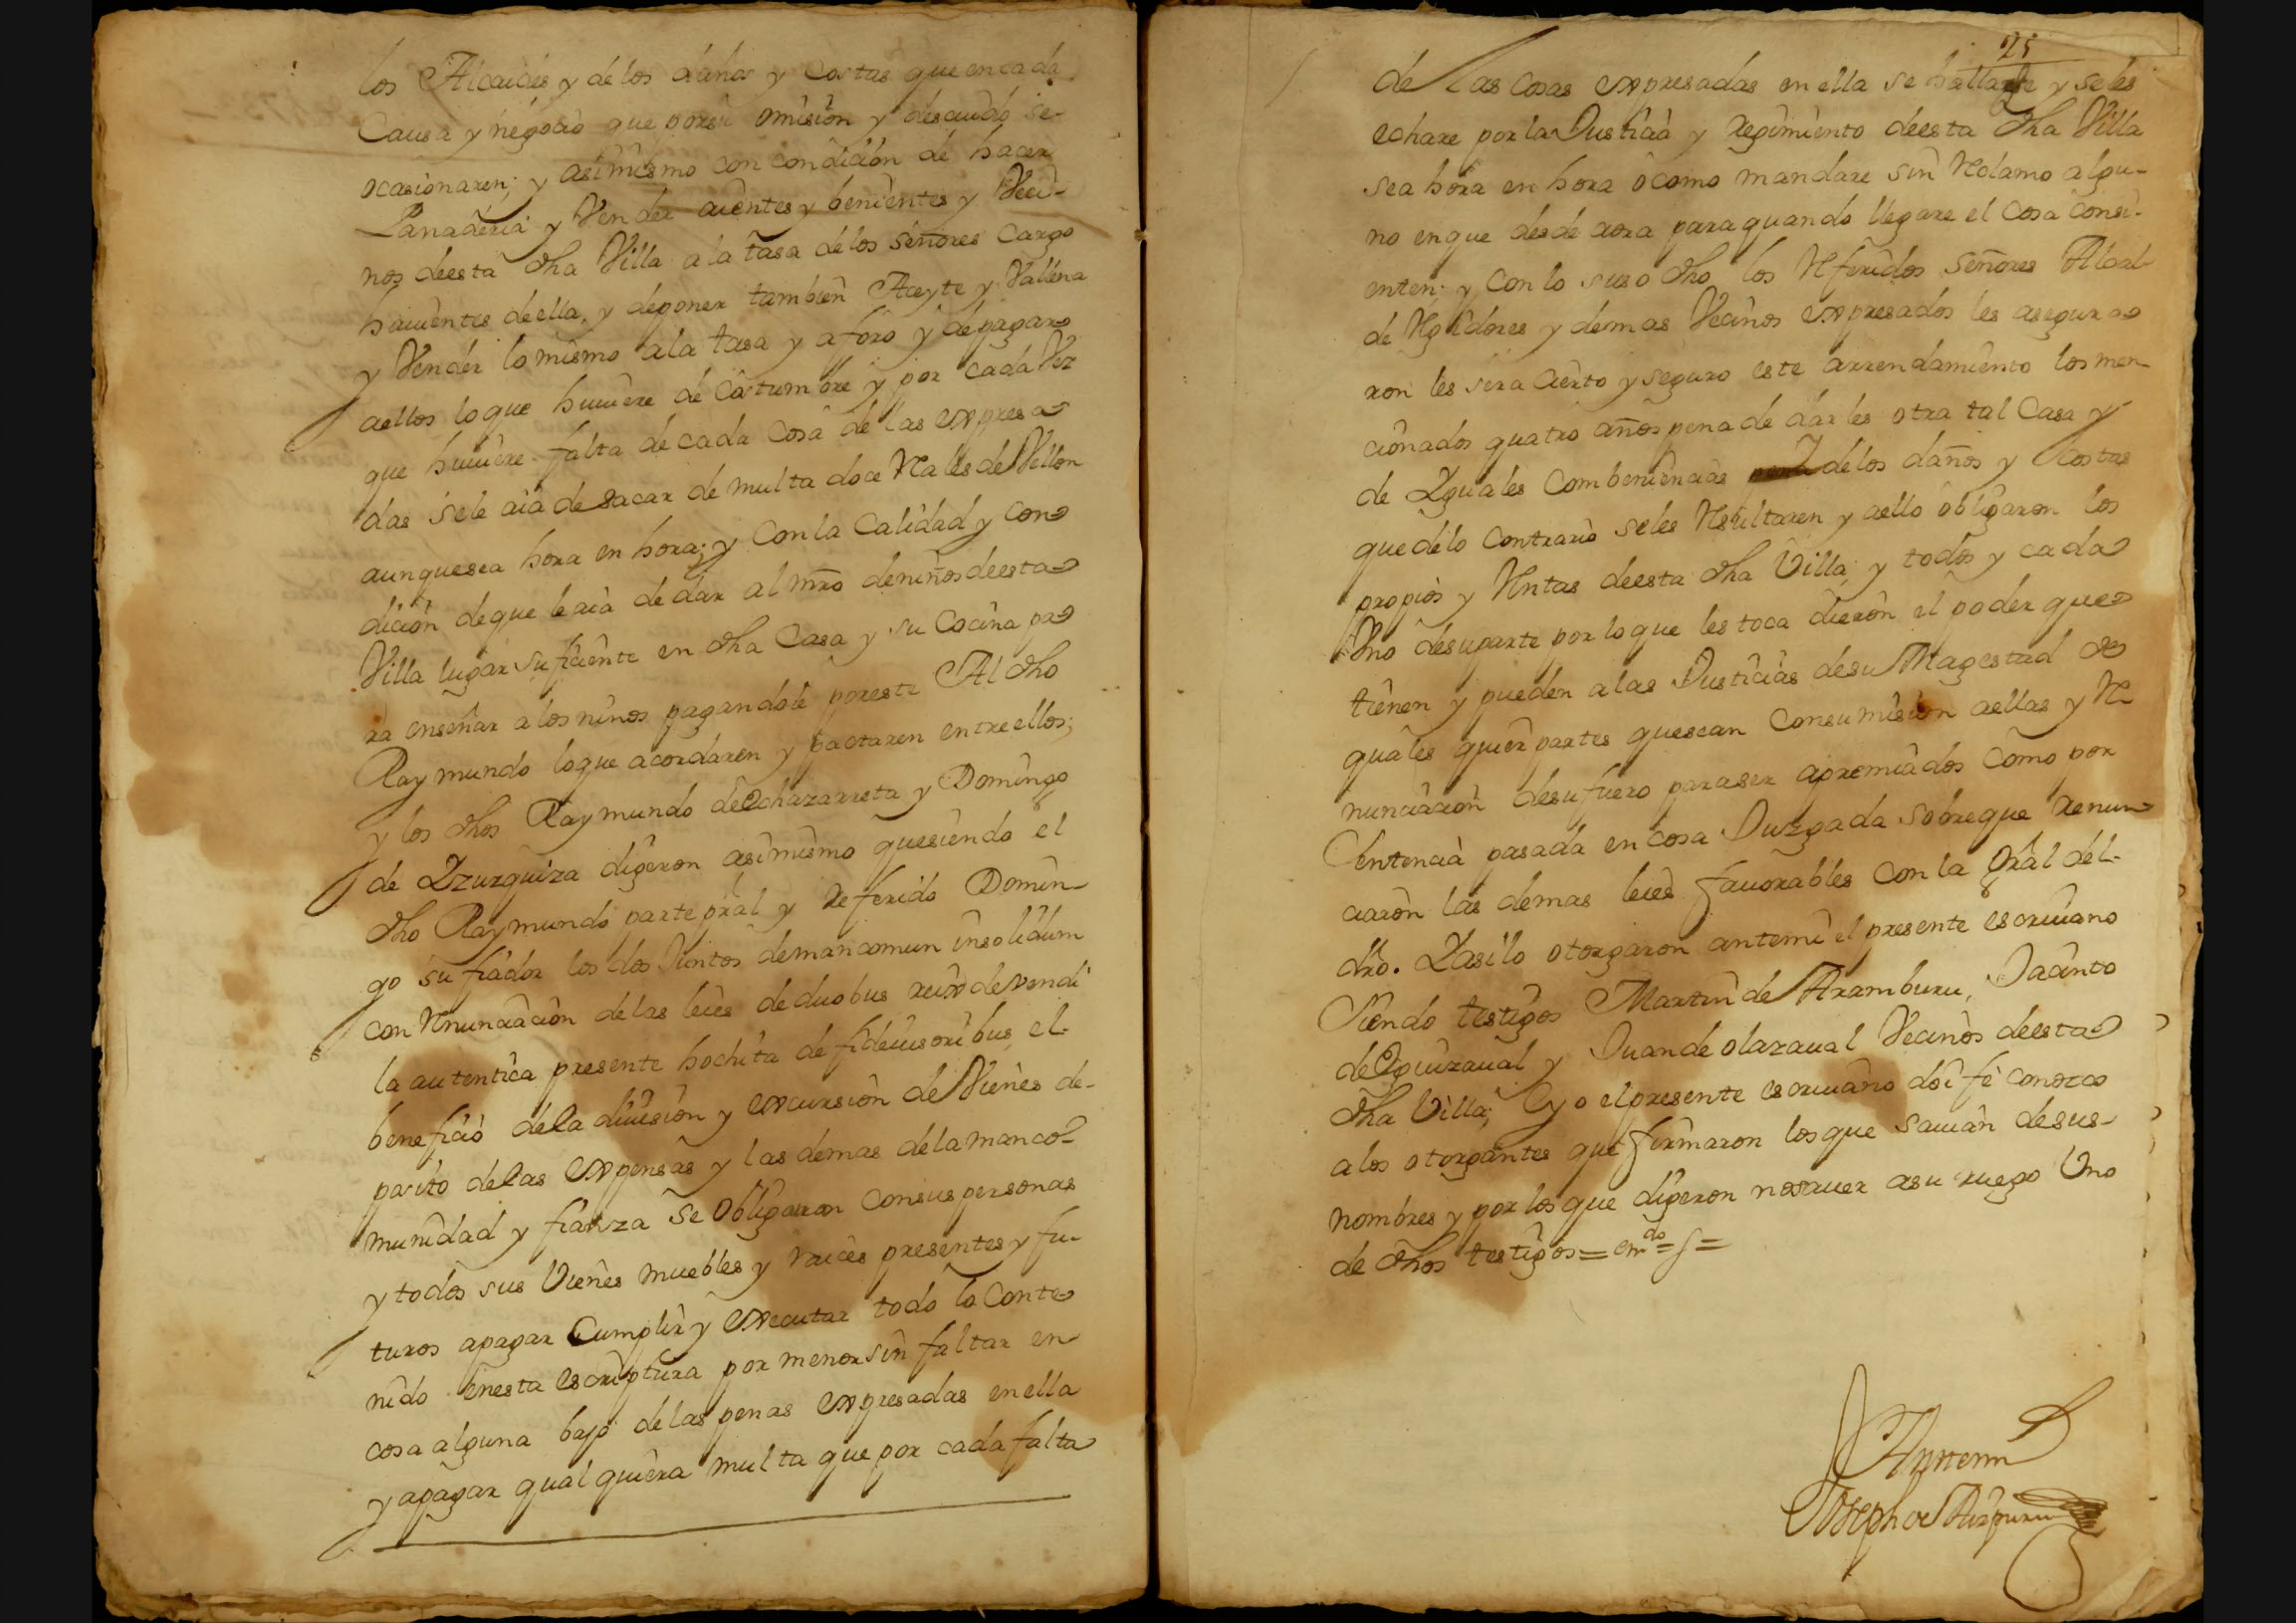 los Alcaides y de los daños y Costas que en cada
Causa y negoçio que por su omision y descuido se
ocasionaren; y asimismo con condiçión de hacer
Panaderia y Vender aientes y benientes y Veci-
nos de esta dha Villa a la tasa de los Señores Cargo
hauientes de ella, y deponer tambien Aceyte y Vallena
y Vender lo mismo a la tasa y aforo y de pagar
aellos lo que huuiere de Costumbre y por cada Vez
que huuiere falta de cada Cosa de las expresa
das sele aia de sacar de multa doce Rales de Vellon
aunque sea hora en hora; y Con la Calidad y con
diçion de que le aia de dar al mro de niños de esta
Villa lugar sufiçiente en dha Casa y su Cocina pa
ra enseñar a los niños pagandole por este Al dho
Raymundo lo que acordaren y pactaren entre ellos;
y los dhos Raymundo de Echazarreta y Domingo
de Yzurquiza digeron asimismo que siendo el
dho Raymundo parte pral y referido Domin-
go su fiador los dos Juntos de mancomun insolidum
con Rnunçiaçion de las leies de duobus reix devendi
la autentica presente hochita de fideiusoribus, el
benefiçio de la diuision y excursion de Vienes de-
posito de las expensas y las demas de la manco-
munidad y fianza se obligaron con sus personas
y todos sus Vienes muebles y raices presentes y fu-
turos apagar Cumplir y executar todo lo Conte
nido en esta escriptura por menor sin faltar en
cosa alguna bajo de las penas expresadas en ella
y apagar qual quiera multa que por cada falta
25
de las Cosas expresadas en ella se hallare y se les
echare por la Justiçia y regimiento de esta dha Villa
sea hora en hora ò como mandare sin Rclamo algu-
no en que desde aora para quando llegare el Cosa Consi-
enten; y Con lo suso dho los Rferidos Señores Alcal-
de Rgidores y demas Veçinos expresados les asegura
ron les sera çierto y seguro este arrendamiento los men-
çionados quatro años pena de dar les otra tal Casa y
de Yguales Combenienças de los daños y Costas
que de lo Contrario se les Rsultaren y aello obligaron los
propios y Rntas de esta dha Villa, y todos y cada
Vno de su parte por lo que les toca dieron el poder que
tienen y pueden a las Justiçias de su Magestad de
quales quier partes que sean Consumision aellas y R-
nunçiaçion de su fuero para ser apremiados Como por
Sentençia pasada en cosa Juzgada sobre que renun
çiaron las demas leies fauorables Con la gral del
dro. Y asi lo otorgaron ante mi el presente escriuano
Siendo testigos Martin de Aramburu, Jacinto
de Eguizaual y Juan de olazaual Veçinos de esta
dha Villa; E yo el presente escriuano doi fe conozco
a los otorgantes que firmaron los que sauian de sus
nombres y por los que digeron no sauer asu ruego Uno
de dhos testigos = em.do = s =
Ante mi
Joseph de Aizpuru